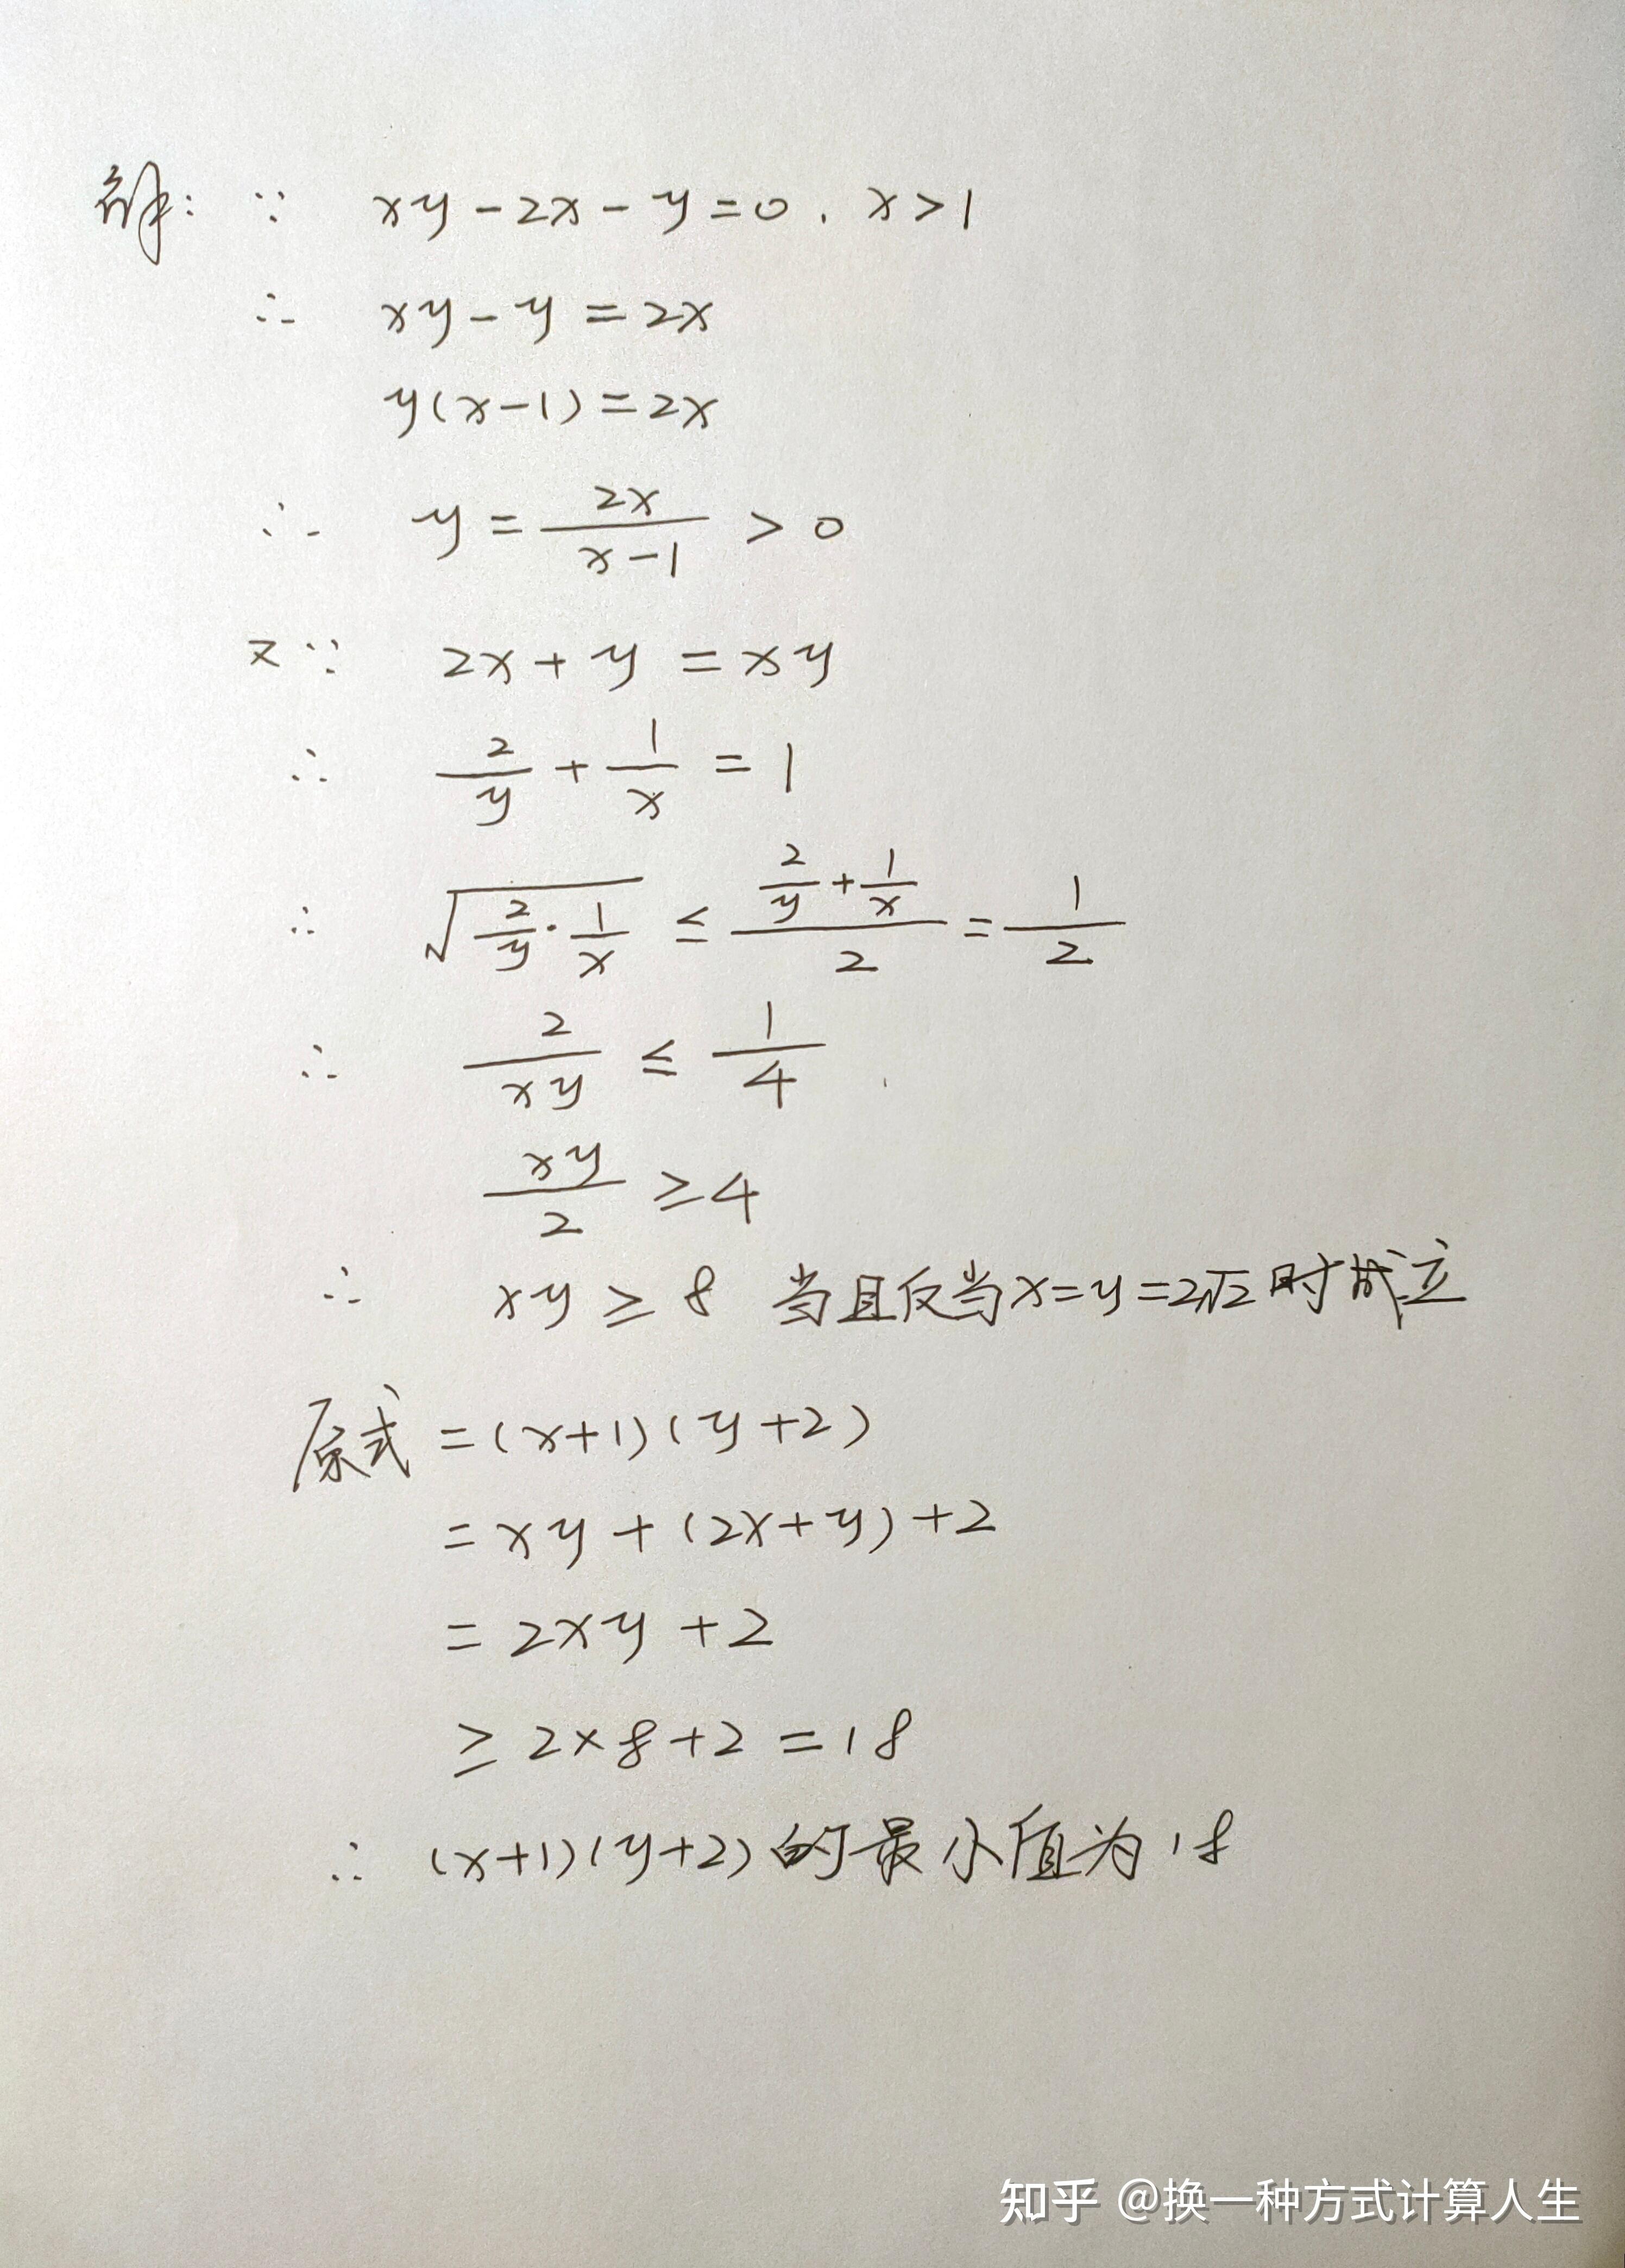 解: ∵ xy-2x-y=0. x>1
∴ xy-y=2x
y(x-1)=2x
∴ y=\frac{2x}{x-1}>0
又∵ 2x+y=xy
∴ \frac{2}{y}+\frac{1}{x}=1
∴ \sqrt{\frac{2}{y}·\frac{1}{x}}≤\frac{\frac{2}{y}+\frac{1}{x}}{2}=\frac{1}{2}
∴ \frac{2}{xy}≤\frac{1}{4}
\frac{xy}{2}≥4
∴ xy≥8 当且仅当x=y=2√2时成立
原式=(x+1)(y+2)
=xy+(2x+y)+2
=2xy+2
≥2×8+2=18
∴ (x+1)(y+2)的最小值为18
知乎 @换一种方式计算人生